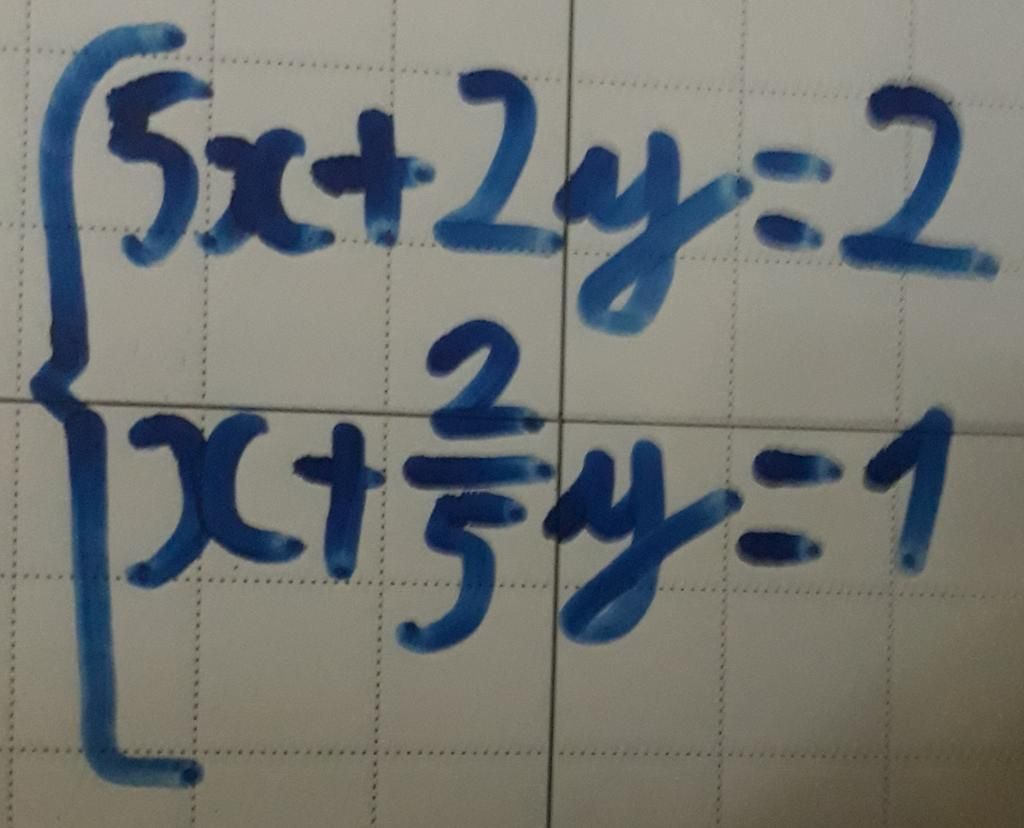 5x+2y=2
x+2/5y=1